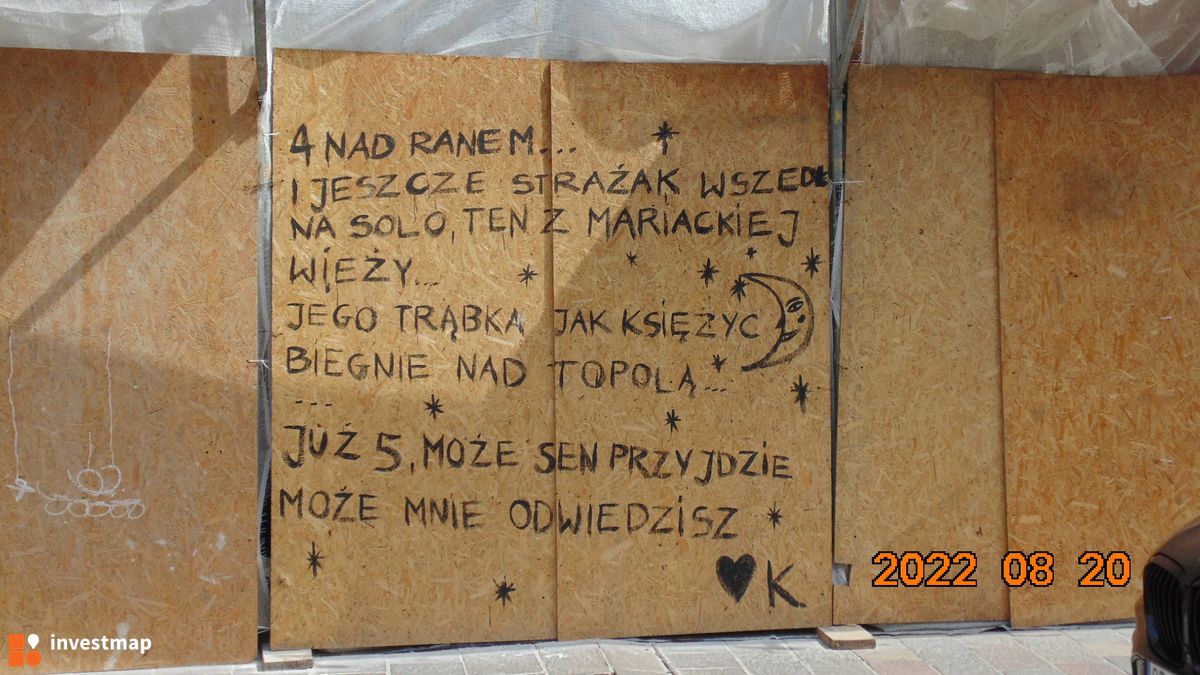 4 NAD RANEM...
I JESZCZE STRAŻAK WSZEDŁ
NA SOLO, TEN Z MARIACKIEJ
WIEŻY...
JEGO TRĄBKA JAK KSIĘŻYC
BIEGNIE NAD TOPOLĄ...
...
JUŻ 5, MOŻE SEN PRZYJDZIE
MOŻE MNIE ODWIEDZISZ
♥ K
2022 08 20
investmap